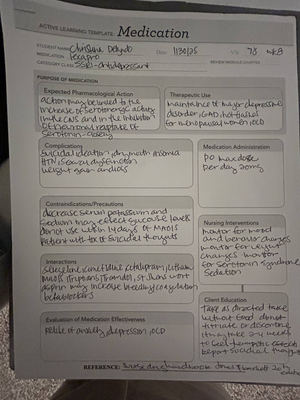 ACTIVE LEARNING TEMPLATE: Medication
STUDENT NAME Christina
MEDICATION Lexapro 1/30/25 7/8
CATEGORY CLASS SSRI-antidepressant REVIEW MODULE CHAPTER
PURPOSE OF MEDICATION
Expected Pharmacological Action
action may be linked to the
increase of serotonergic activity
in the CNS and in the inhibition
of neuronal reuptake of
serotonin
Therapeutic Use
maintenance of major depressive
disorder, GAD, hot flashes
for menopausal women, OCD
Complications
suicidal ideation, dry mouth, insomnia
HTN, sexual dysfunction
weight gain
Medication Administration
PO max dose
per day 20mg
Contraindications/Precautions
decrease serum potassium and
sodium may effect glucose levels
do not use within 14 days of MAOIs
patient with hx of suicidal thoughts
Nursing Interventions
Monitor for mood
and behavior changes
monitor for weight
changes monitor
for serotonin syndrome
Sedation
Interactions
citalopram, lithium
MAOIs, triptans, tramadol, St. Johns wort
aspirin may increase bleeding
beta blockers
Client Education
Take as directed take
without food do not
titrate or discontinue
may take 2-4 weeks
to feel therapeutic effects
Report suicidal thoughts
Evaluation of Medication Effectiveness
relief of anxiety, depression, OCD
REFERENCE: